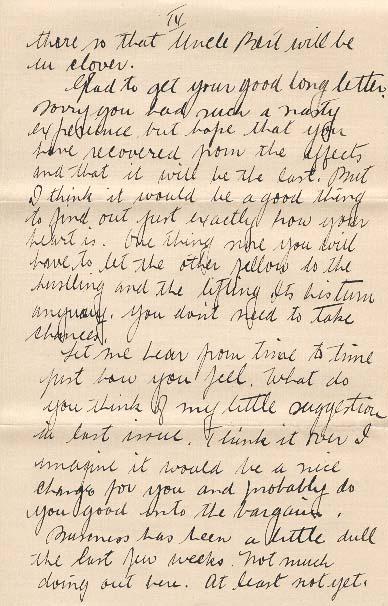 IV
there so that Uncle Bert will be
in clover.
Glad to get your good long letter.
Sorry you had such a nasty
experience but hope that you
have recovered from the effects
and that it will be the last. But
I think it would be a good thing
to find out just exactly how your
heart is. One thing sure you will
have to let the other fellow do the
hustling and the lifting. Its his turn
anyway. You don't need to take
chances.
Let me hear from time to time
just how you feel. What do
you think of my little suggestion
in last issue. Think it over I
imagine it would be a nice
change for you and probably do
you good into the bargain.
Business has been a little dull
the last few weeks. Not much
doing out here. At least not yet.